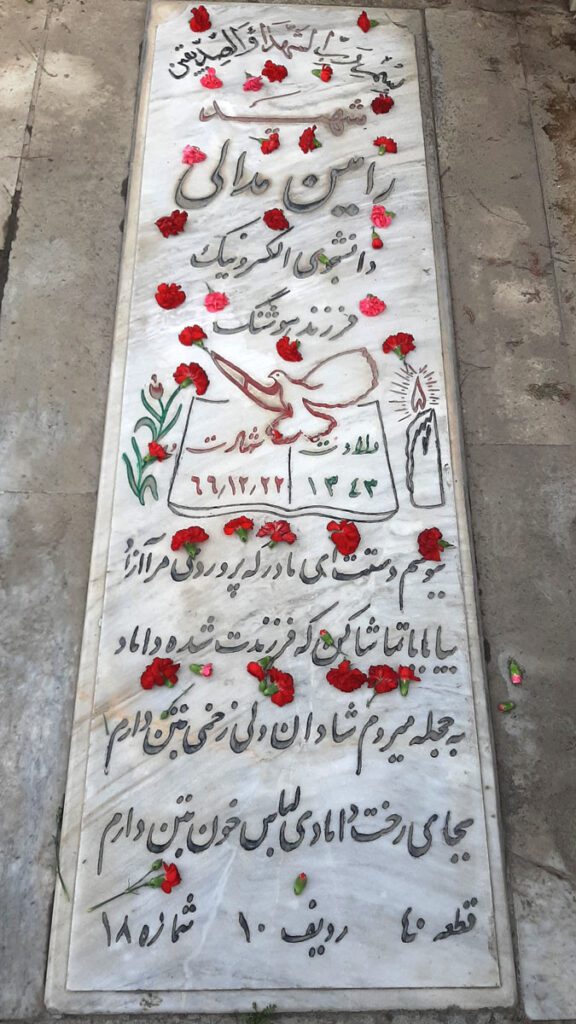 بسم رب الشهداء و الصدیقین
شهید
رامین مدالی
دانشجوی الکترونیک
فرزند هوشنگ
ولادت شهادت
۱۳۴۳ ۶۶٫۱۲٫۲۲
ببوسم دستت ای مادر که پروردی مرا آزاد
بیا بابا تماشا کن که فرزندت شده داماد
به حجله میروم شادان ولی زخمی بتن دارم
بجای رخت دامادی لباس خون بتن دارم
قطعه ۴۰ ردیف ۱۰ شماره ۱۸